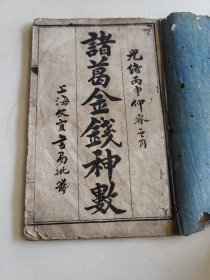 光緒丙申仲春之月
諸葛金錢神數
上海文宜書局批發